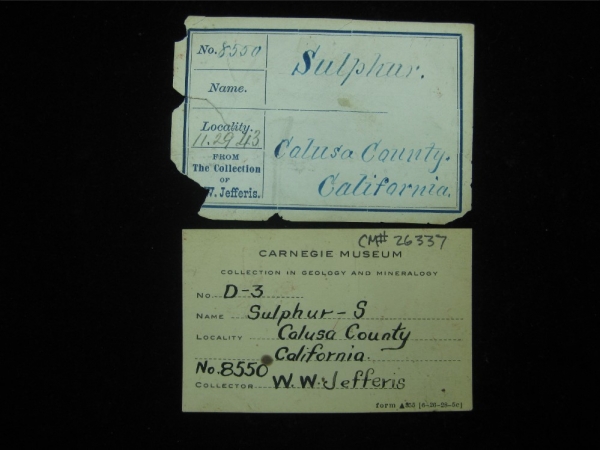 No. 8550
Sulphur.
Name.
Locality.
11.29 43
Calusa County.
California.
FROM
The Collection
OF
W. Jefferis.
CM# 26337
CARNEGIE MUSEUM
COLLECTION IN GEOLOGY AND MINERALOGY
No. D-3
NAME Sulphur-S
LOCALITY Calusa County
California.
No. 8550
COLLECTOR W. W. Jefferis
form